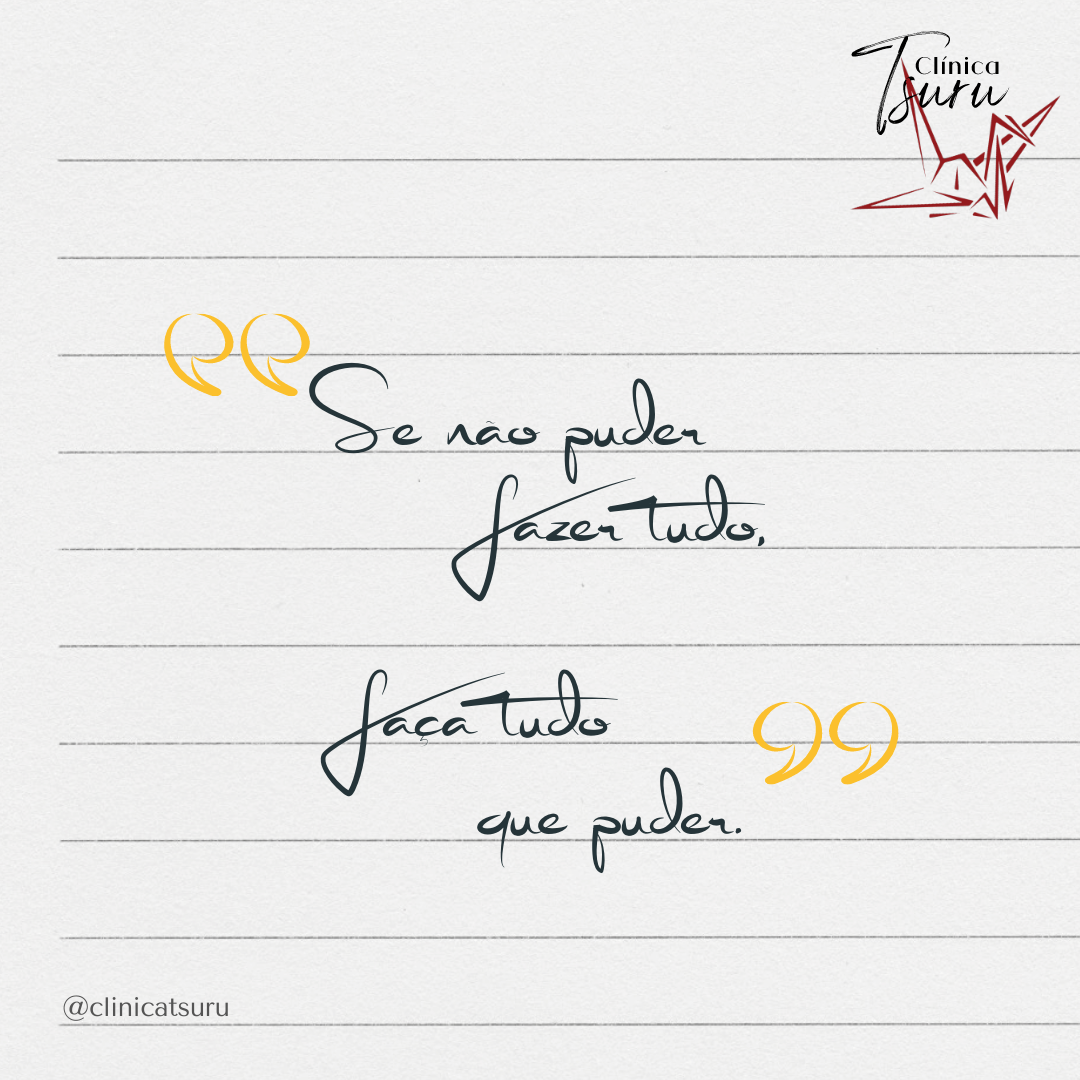 Clínica
Tsuru
Se não puder
fazer tudo,
faça tudo
que puder.
@clinicatsuru